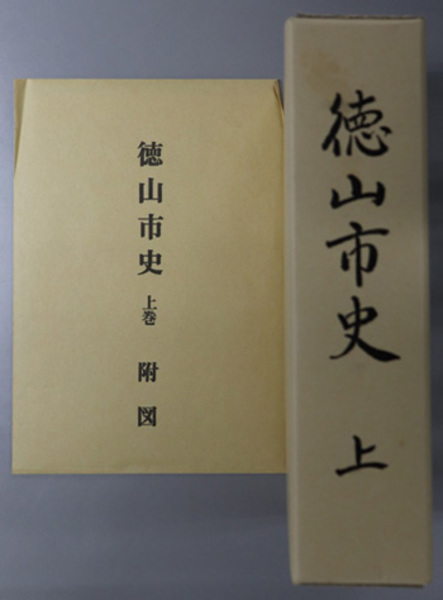 徳山市史
上巻
附図
徳山市史
上